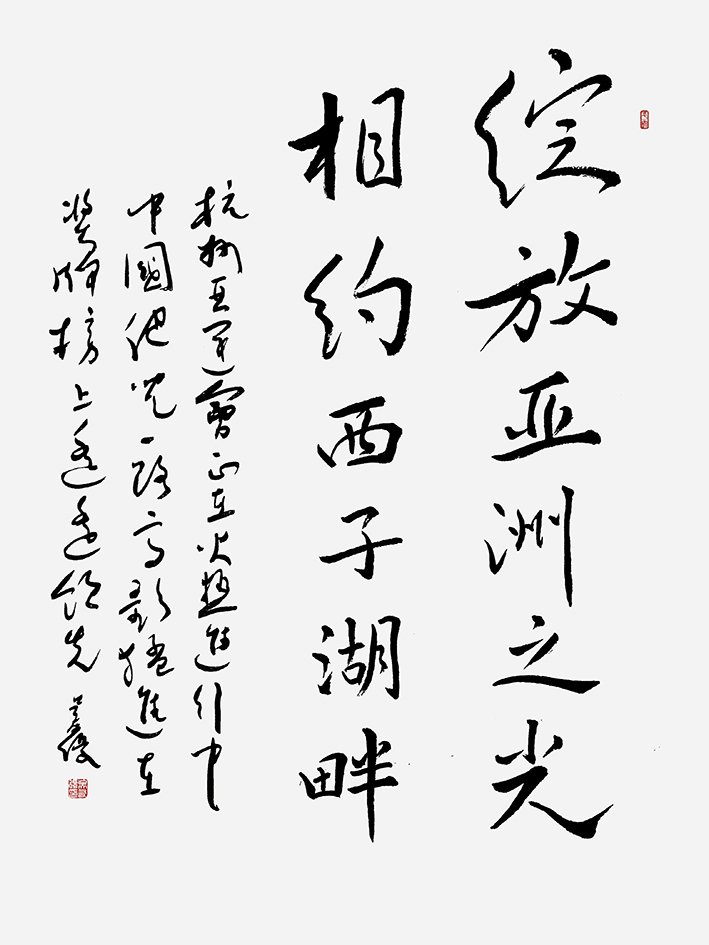 綻放亚洲之光
相约西子湖畔
杭州亚運會正在火熱進行中
中國健兒一路高歌猛進在
奖牌榜上遥遥领先